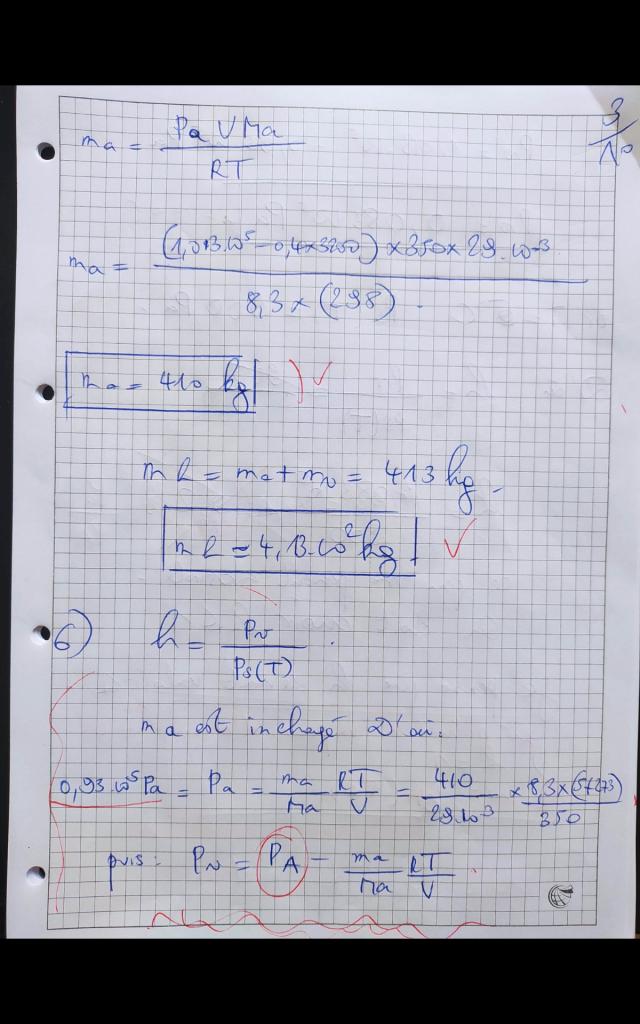 3/10
ma = Pa V Ma / RT
ma = (1,013.10⁵ - 0,4×3250) × 350 × 29.10⁻³ / 8,3 × (298).
ma = 410 kg ) ✓
m h = ma + mv = 413 kg.
m h = 4,13.10² kg ✓
6) h = Pv / Ps(T).
ma est inchagé D'où:
0,93.10⁵ Pa = Pa = ma/Ma RT/V = 410/29.10⁻³ × 8,3×(5+273)/350
puis: Pv = PA - ma/Ma RT/V.